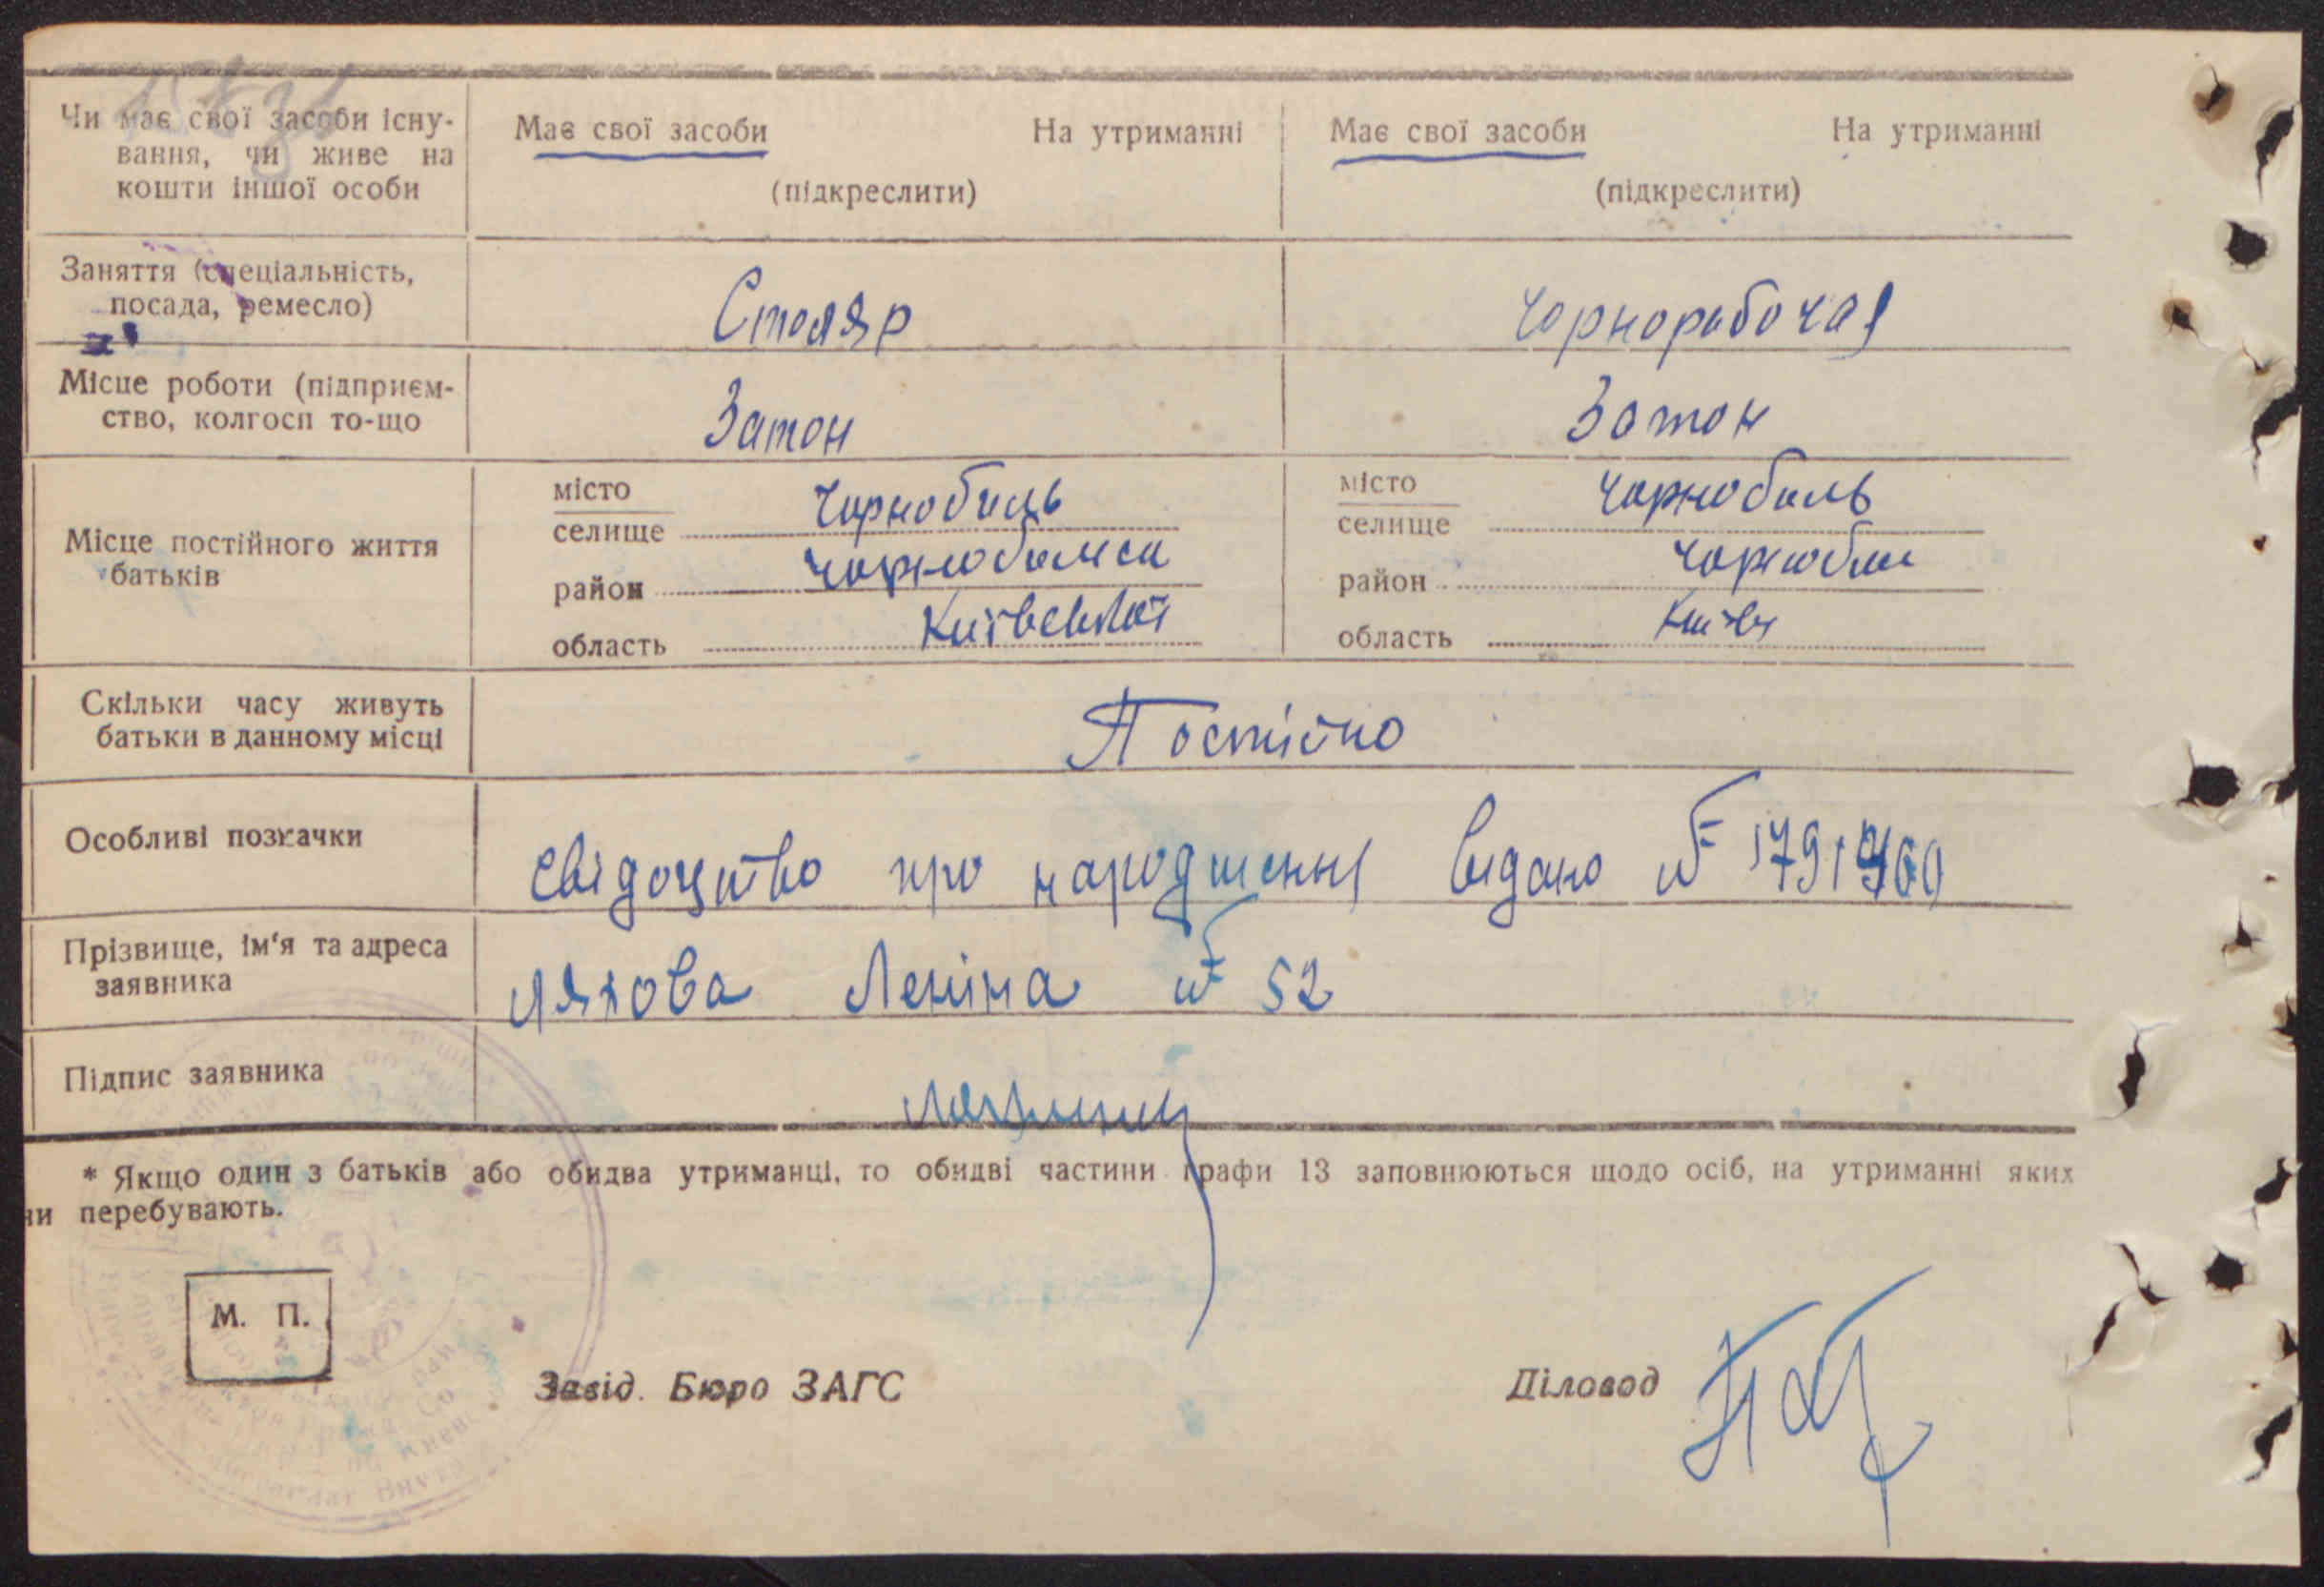 Чи має свої засоби існу-
вання, чи живе на
кошти іншої особи
Має свої засоби На утриманні
(підкреслити)
Має свої засоби На утриманні
(підкреслити)
Заняття (спеціальність,
посада, ремесло)
Столяр
Чорнорабочая
Місце роботи (підприєм-
ство, колгосп то-що
Затон
Затон
Місце постійного життя
батьків
місто
селище Чорнобиль
район
область Київської
місто
селище Чорнобиль
район
область
Скільки часу живуть
батьки в данному місці
Постійно
Особливі позначки
свідоцтво про народження видано №
Прізвище, ім'я та адреса
заявника
Ляхова Леніна № 52
Підпис заявника
* Якщо один з батьків або обидва утриманці, то обидві частини графи 13 заповнюються щодо осіб, на утриманні яких
ни перебувають.
М. П.
Завід. Бюро ЗАГС
Діловод